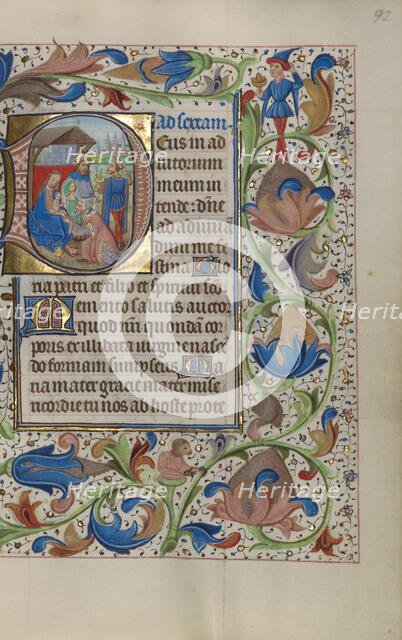 92
Ad sextam
Deus in ad
iutorium
meum in
tende: dñe
ad adiuua
dum me fe
stina Glo
ria patri et filio et spiritui sco
Memento salutis auctor
quod nr̄i quondā cor
poris ex illibata uirgine nasce
do formam sumpseris Ma
ria mater gracie mater mise
ricordie tu nos ab hoste prote
Heritage
Heritage
Heritage
Heritage
Heritage
Heritage
Heritage